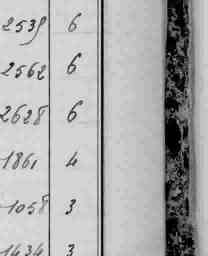 2539 6
2562 6
2628 6
1861 4
1058 3
1434 3